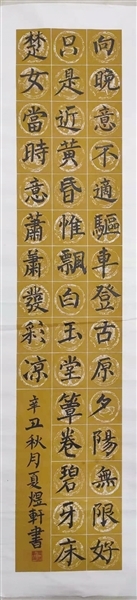 向晚意不適驅車登古原夕陽無限好
只是近黃昏惟飄白玉堂簟卷碧牙床
楚女當時意蕭蕭發彩涼
辛丑秋月夏煜軒書